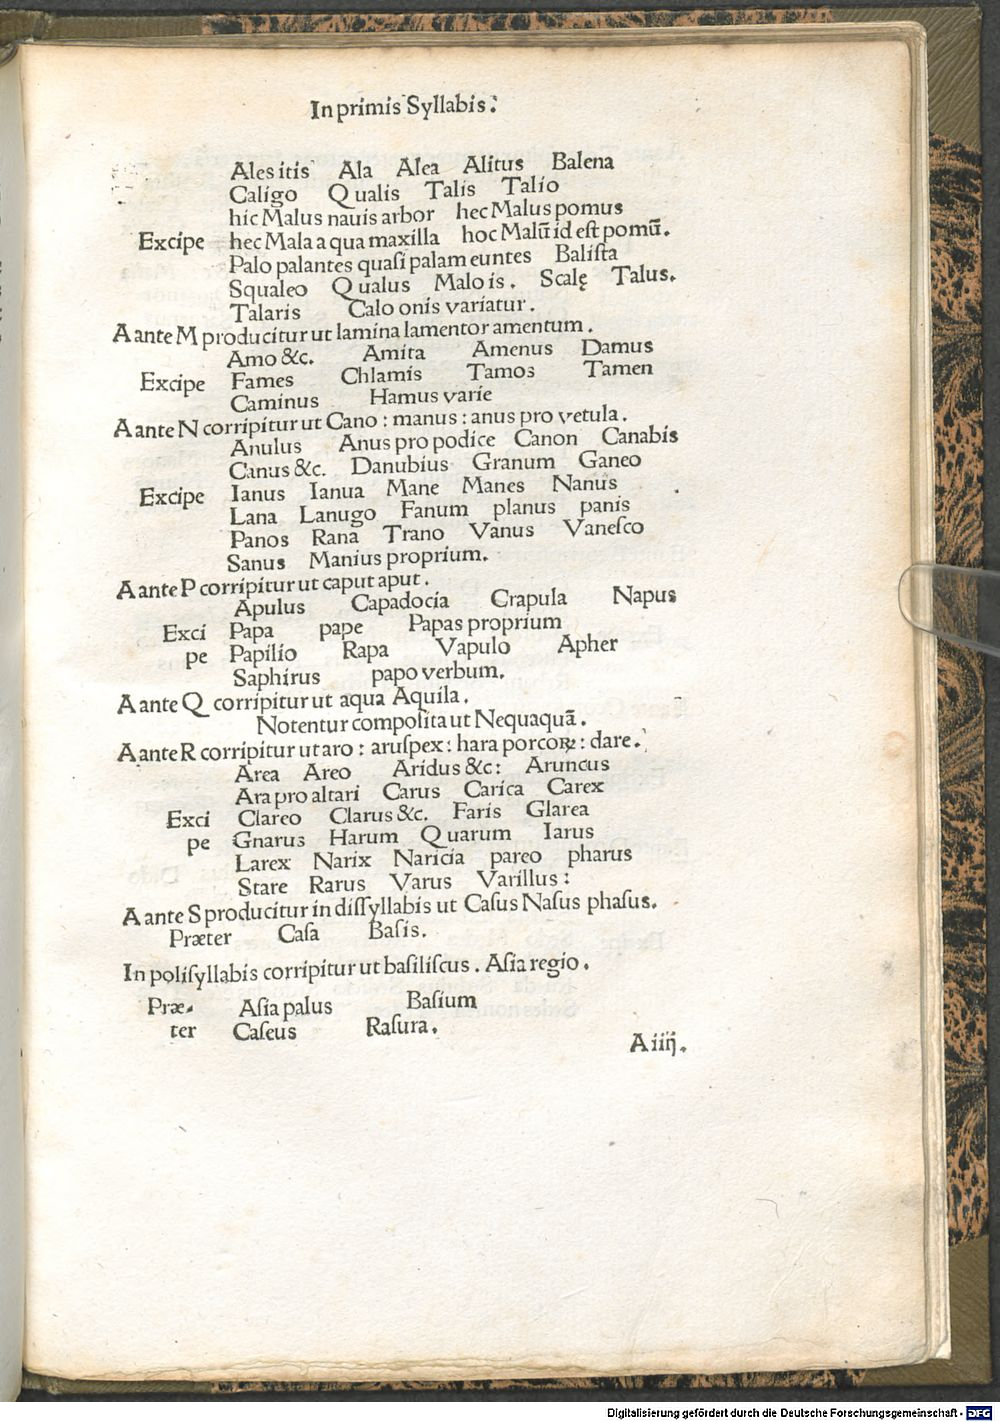 In primis Syllabis.
Ales itis Ala Alea Alitus Balena
Caligo Qualis Talis Talio
hic Malus nauis arbor hec Malus pomus
Excipe hec Mala a qua maxilla hoc Malū id est pomū.
Palo palantes quasi palam euntes Balista
Squaleo Qualus Malo is. Scalę Talus.
Talaris Calo onis variatur.
A ante M producitur ut lamina lamentor amentum.
Amo &c. Amita Amenus Damus
Excipe Fames Chlamis Tamos Tamen
Caminus Hamus varie
A ante N corripitur ut Cano : manus : anus pro vetula.
Anulus Anus pro podice Canon Canabis
Canus &c. Danubius Granum Ganeo
Excipe Ianus Ianua Mane Manes Nanus
Lana Lanugo Fanum planus panis
Panos Rana Trano Vanus Vaneſco
Sanus Manius proprium.
A ante P corripitur ut caput aput.
Apulus Capadocia Crapula Napus
Exci Papa pape Papas proprium
pe Papilio Rapa Vapulo Apher
Saphirus papo verbum.
A ante Q corripitur ut aqua Aquila.
Notentur compoſita ut Nequaquā.
A ante R corripitur ut aro : aruſpex : hara porcoꝝ : dare.
Area Areo Aridus &c : Aruncus
Ara pro altari Carus Carica Carex
Exci Clareo Clarus &c. Faris Glarea
pe Gnarus Harum Quarum Iarus
Larex Narix Naricia pareo pharus
Stare Rarus Varus Varillus :
A ante S producitur in diſſyllabis ut Caſus Naſus phaſus.
Præter Caſa Baſis.
In poliſyllabis corripitur ut baſiliſcus. Aſia regio.
Præ- Aſia palus Baſium
ter Caſeus Raſura.
A iiij.
Digitalisierung gefördert durch die Deutsche Forschungsgemeinschaft - DFG